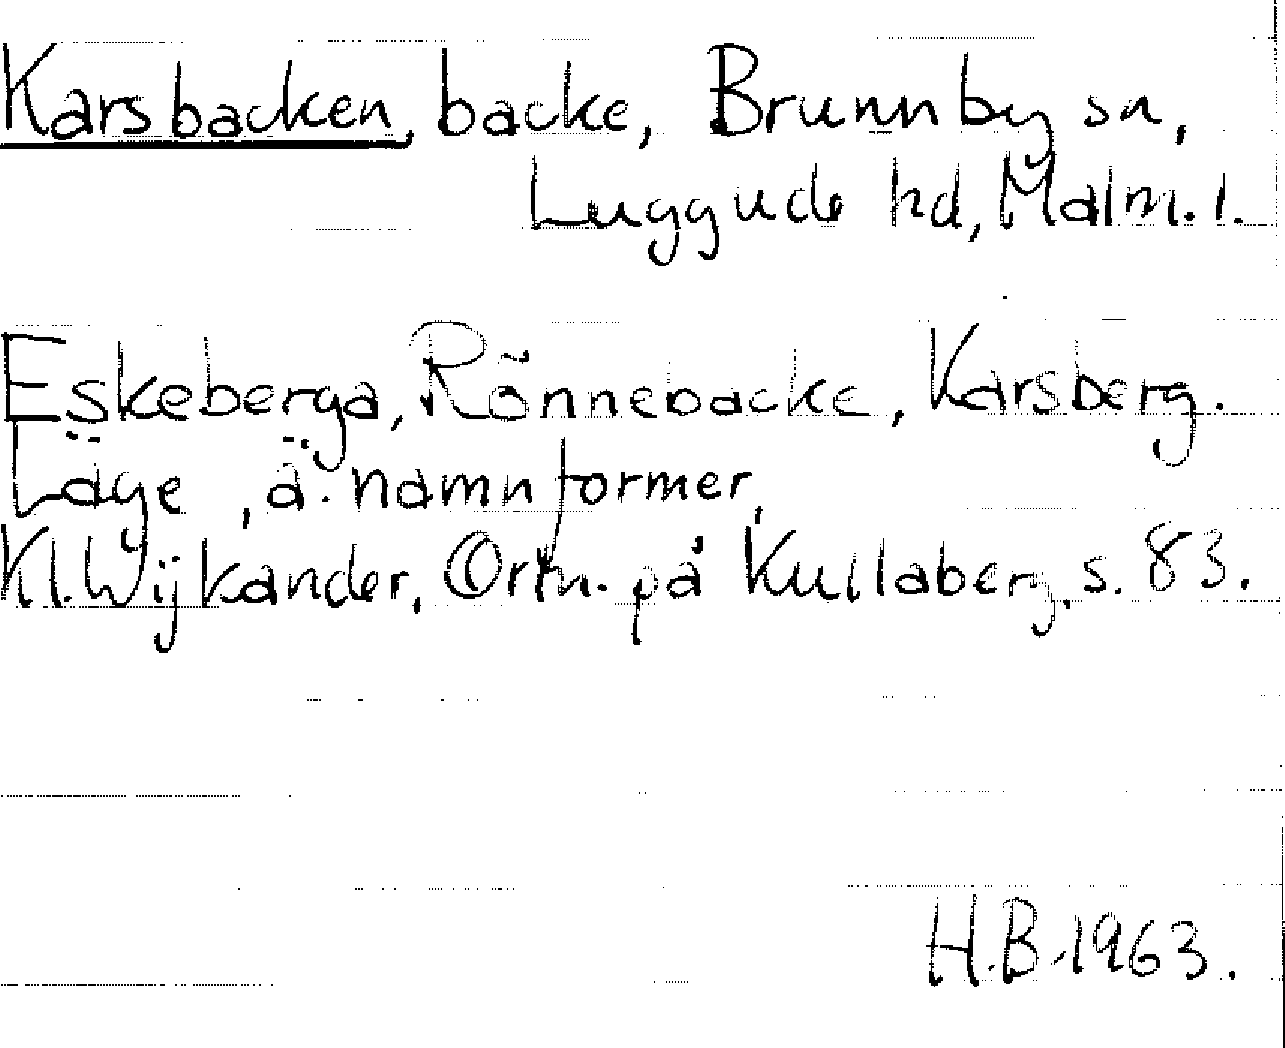 Karsbacken, backe, Brunnby sn,
Luggude hd, Malm. l.
Eskeberga, Rönnebacke, Karsberg.
Läge, ä. namnformer,
Kl. Wijkander, Ortn. på Kullaberg, s. 83.
H.B. 1963.